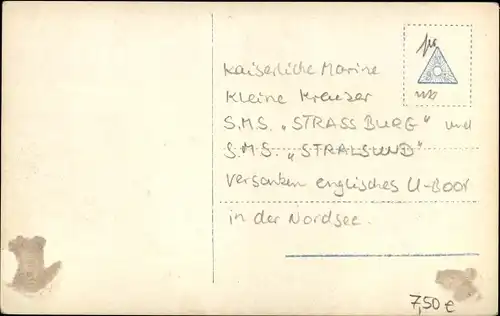 Kaiserliche Marine
Kleine Kreuzer
S.M.S. „STRASSBURG" und
S.M.S. „STRALSUND"
versanken englisches U-Boot
in der Nordsee.
7,50 €